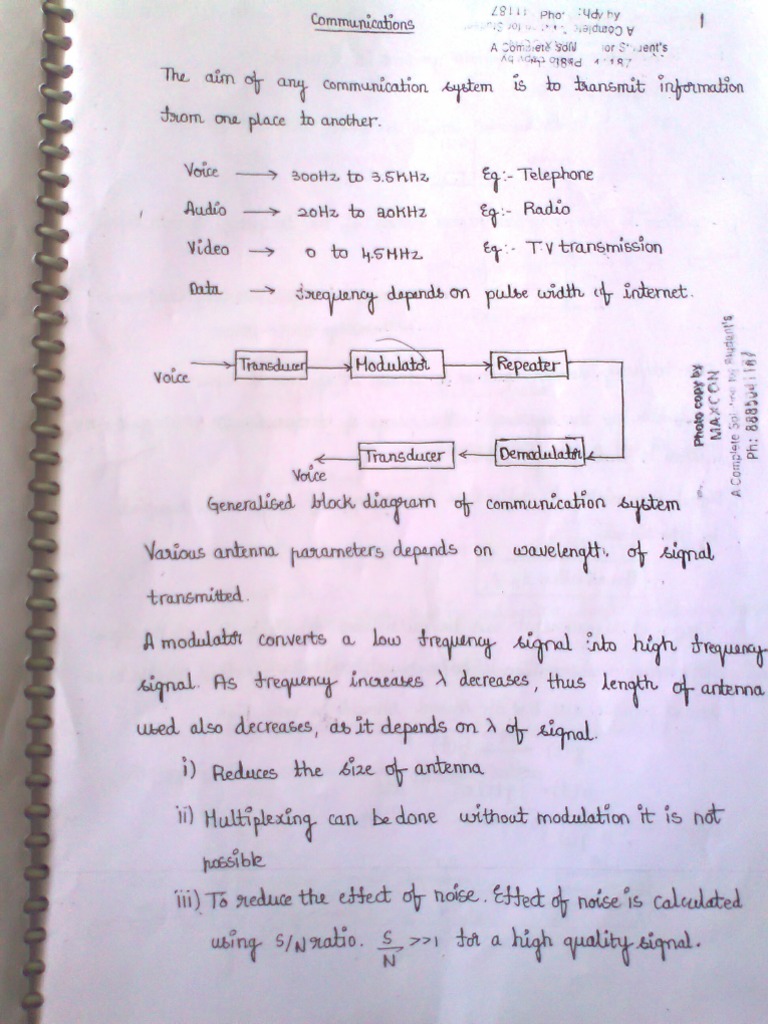 Communications
1
A Complete
The aim of any communication system is to transmit information
from one place to another.
Voice → 300Hz to 3.5KHz Eg:- Telephone
Audio → 20Hz to 20KHz Eg:- Radio
Video → 0 to 4.5MHz Eg:- T.V transmission
Data → frequency depends on pulse width of internet.
Voice → Transducer → Modulator → Repeater
Voice ← Transducer ← Demodulator
Photo copy by
MAXCON
A Complete Student's
Ph:
Generalised block diagram of communication system
Various antenna parameters depends on wavelength of signal
transmitted.
A modulator converts a low frequency signal into high frequency
signal. As frequency increases λ decreases, thus length of antenna
used also decreases, as it depends on λ of signal.
i) Reduces the size of antenna
ii) Multiplexing can be done without modulation it is not
possible
iii) To reduce the effect of noise. Effect of noise is calculated
using S/N ratio. S/N >>1 for a high quality signal.